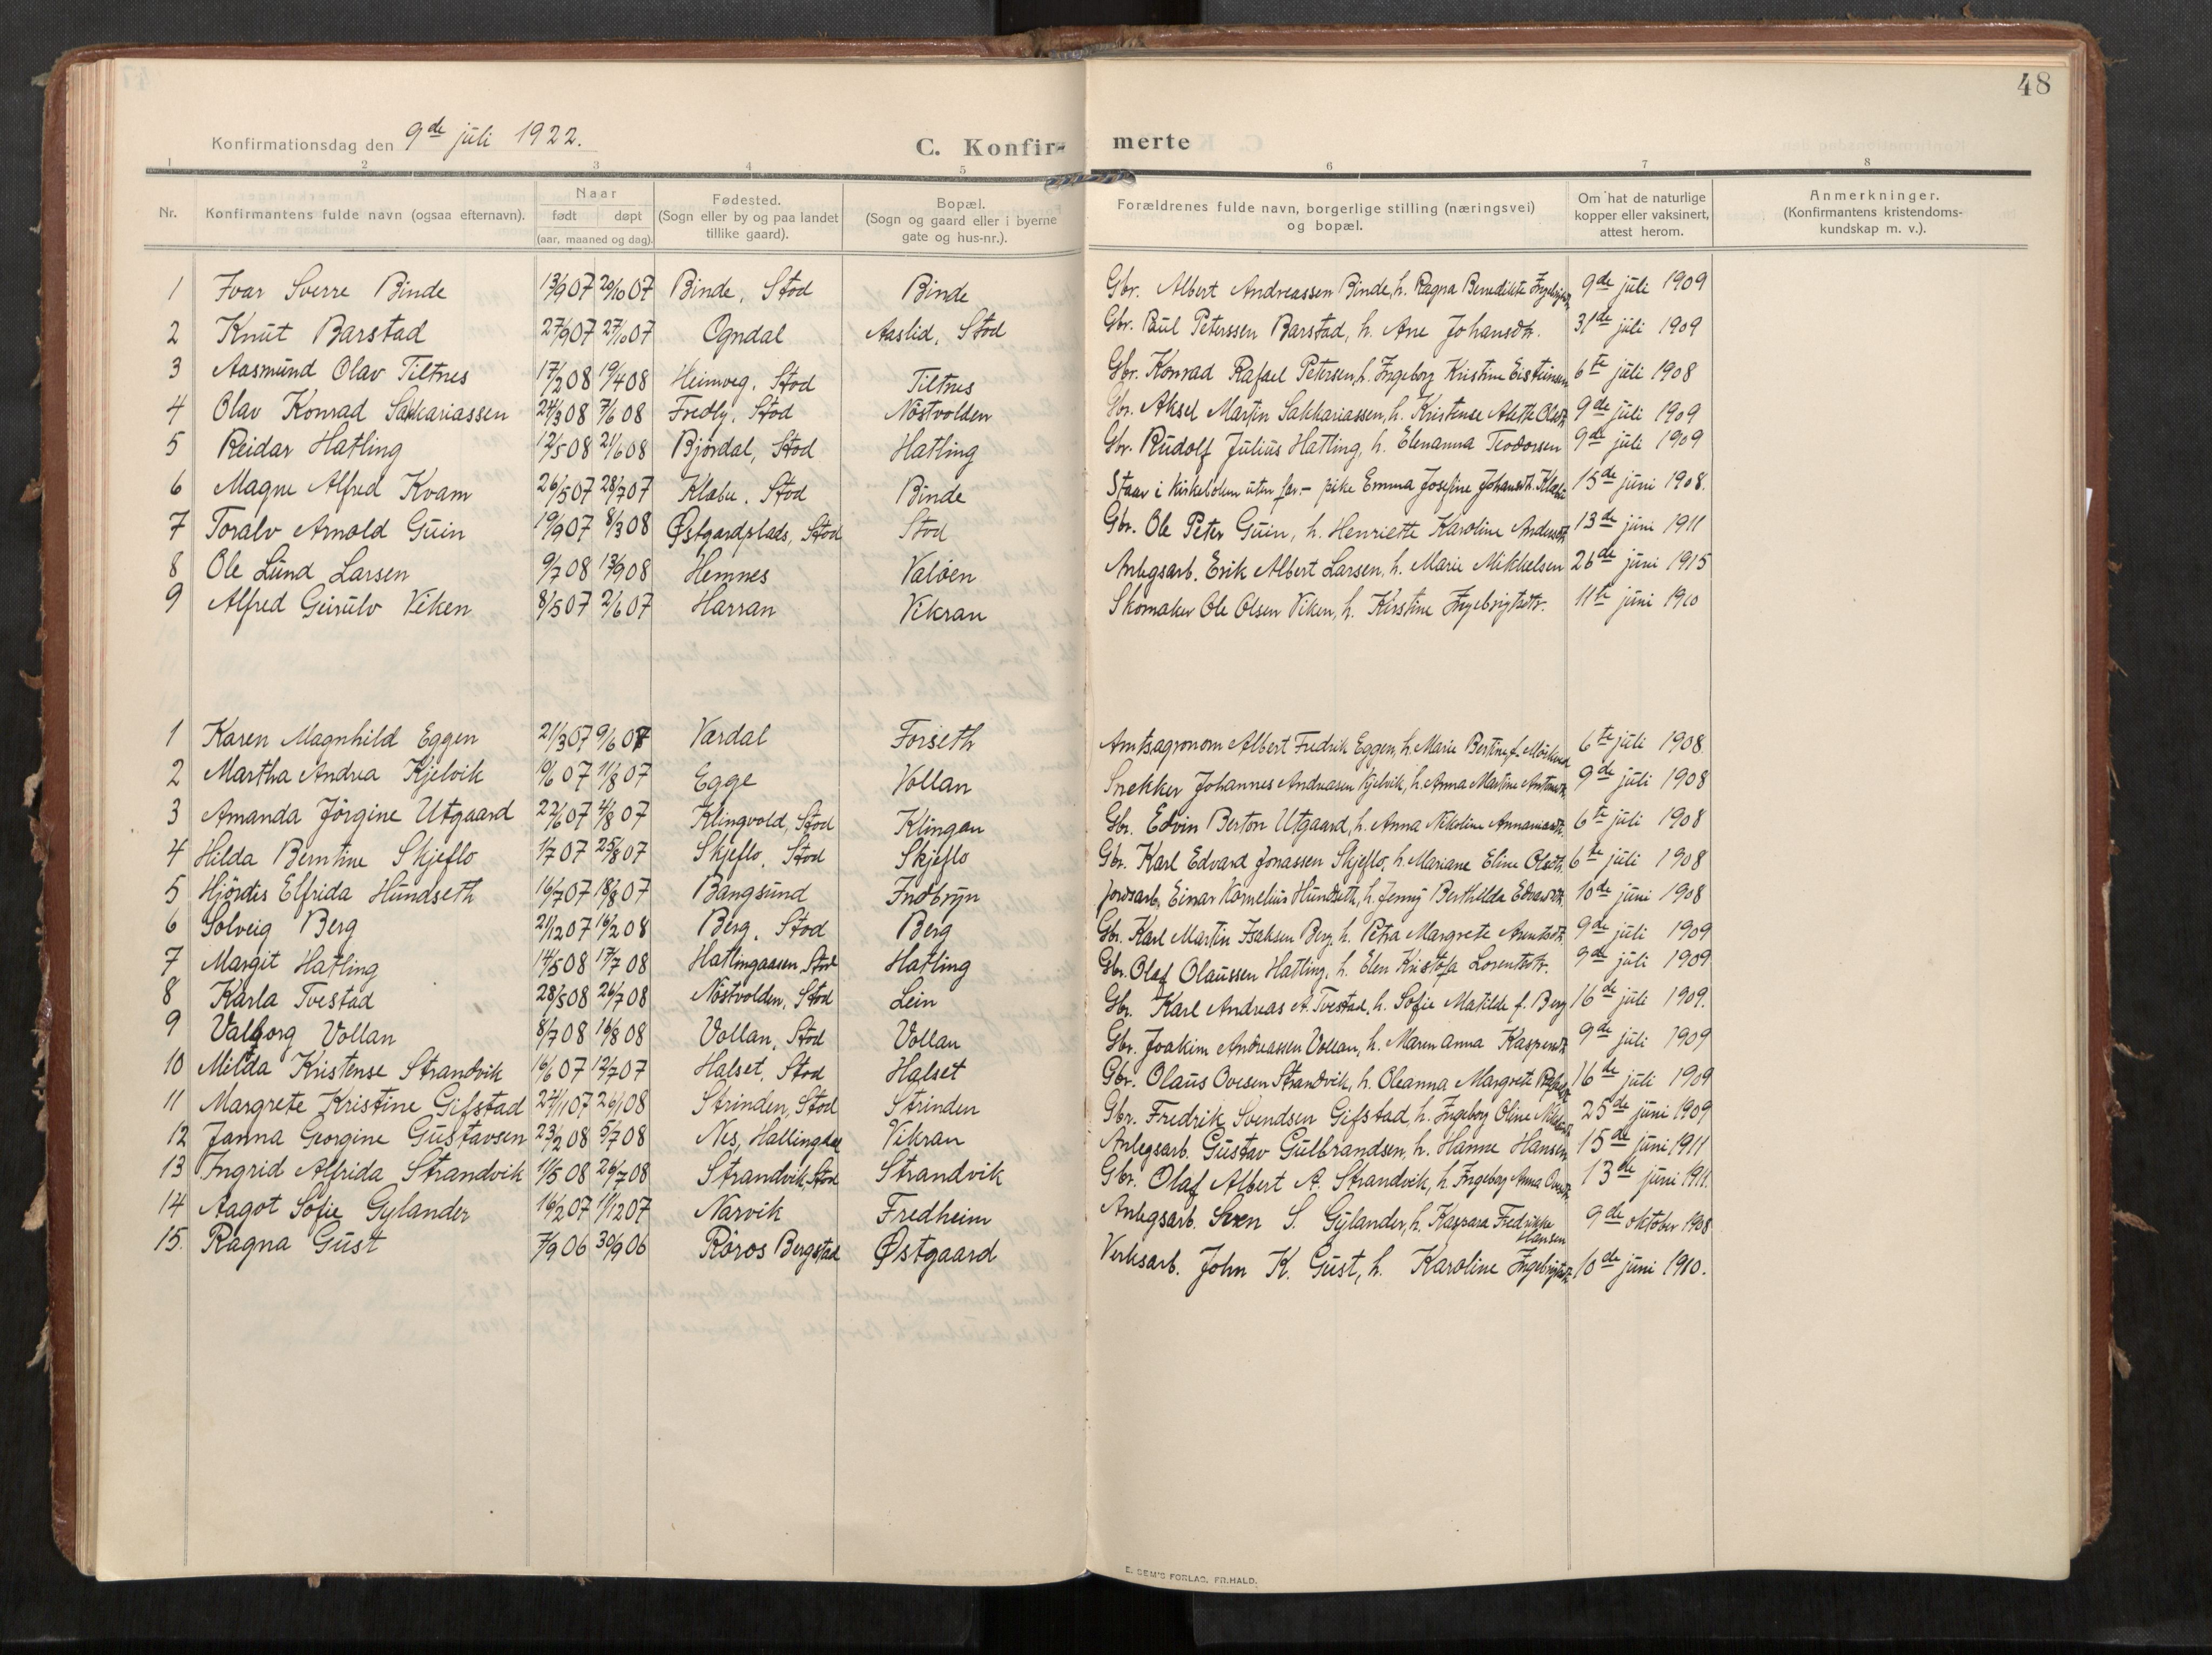 48
Konfirmationsdag den 9de juli 1922.
C. Konfir- merte
1 2 3 4 5 6 7 8
Nr. Konfirmantens fulde navn (ogsaa efternavn). Naar født døpt (aar, maaned og dag). Fødested. (Sogn eller by og paa landet tillike gaard). Bopæl. (Sogn og gaard eller i byerne gate og hus-nr.). Forældrenes fulde navn, borgerlige stilling (næringsvei) og bopæl. Om hat de naturlige kopper eller vaksinert, attest herom. Anmerkninger. (Konfirmantens kristendoms-kundskap m. v.).
1 Ivar Sverre Binde 13/9 07 20/10 07 Binde, Stod Binde Gbr. Albert Andreassen Binde, h. Ragna Benedikte 9de juli 1909
2 Knut Barstad 27/9 07 27/10 07 Ogndal Aaslid, Stod Gbr. Paul Peterssen Barstad, h. Ane Johansdtr. 31de juli 1909
3 Aasmund Olav Tiltnes 17/2 08 19/4 08 Heimveg, Stod Tiltnes Gbr. Konrad Rafael Petersen, h. Ingeborg Kristine Eisteinsen 6te juli 1908
4 Olav Konrad Sakkariassen 24/3 08 7/6 08 Fredly, Stod Nöstvolden Gbr. Aksel Martin Sakkariassen, h. Kristense Alette Olsdtr. 9de juli 1909
5 Reidar Hatling 12/5 08 21/6 08 Bjørdal, Stod Hatling Gbr. Rudolf Julius Hatling, h. Elenanna Teodorsen 9de juli 1909
6 Magne Alfred Kvam 26/5 07 28/7 07 Klæbu, Stod Binde Staar i kirkeboken uten far.- pike Emma Josefine Johansdtr. 15de juni 1908.
7 Toralv Arnold Guin 19/9 07 8/3 08 Østgaardplads, Stod Stod Gbr. Ole Peter Guin, h. Henriette Karoline Andersdtr. 13de juni 1911
8 Ole Lund Larsen 9/7 08 13/9 08 Hemnes Valöen Anlegsarb. Erik Albert Larsen, h. Marie Mikkelsen 26de juni 1915
9 Alfred Geirulv Viken 8/5 07 2/6 07 Harran Vikran Skomaker Ole Olsen Viken, h. Kirstine Ingebrigtsdtr. 11te juni 1910
1 Karen Magnhild Eggen 21/3 07 9/6 07 Værdal Forseth Amtsagronom Albert Fredrik Eggen, h. Marie Bertine f. 6te juli 1908
2 Martha Andrea Kjelvik 19/6 07 11/8 07 Egge Vollan Snekker Johannes Andreasen Kjelvik, h. Anna Martine 9de juli 1908
3 Amanda Jörgine Utgaard 22/6 07 4/8 07 Klingvold, Stod Klingan Gbr. Edvin Berton Utgaard, h. Anna Nikoline 6te juli 1908
4 Hilda Berntine Skjeflo 1/7 07 25/8 07 Skjeflo, Stod Skjeflo Gbr. Karl Edvard Jonassen Skjeflo, h. Mariane Eline Olsdtr. 6te juli 1908
5 Hjördis Elfrida Hundseth 16/7 07 18/8 07 Bangsund Indbryn Jordsarb. Einar Kornelius Hundseth, h. Jenny Berthilda Edvardsdtr. 10de juni 1908
6 Solveig Berg 21/12 07 16/2 08 Berg, Stod Berg Gbr. Karl Martin Isaksen Berg, h. Petra Margrete Arentsdtr. 9de juli 1909
7 Margit Hatling 14/5 08 17/7 08 Hatlingaasen, Stod Hatling Gbr. Olaf Olaussen Hatling, h. Elen Kristofa Lorentsdtr. 9de juli 1909
8 Karla Tvestad 28/5 08 26/7 08 Nöstvolden, Stod Lein Gbr. Karl Andreas A. Tvestad, h. Sofie Matilde f. Berg 16de juli 1909.
9 Valborg Vollan 8/7 08 16/8 08 Vollan, Stod Vollan Gbr. Joakim Andreassen Vollan, h. Maren Anna Kaspersdtr. 9de juli 1909
10 Milda Kristense Strandvik 16/6 07 12/7 07 Halset, Stod Halset Gbr. Olaus Ovesen Strandvik, h. Oleanna Margrete 16de juli 1909
11 Margrete Kristine Gifstad 24/11 07 26/1 08 Strinden, Stod Strinden Gbr. Fredrik Svendsen Gifstad, h. Ingeborg Oline 25de juni 1909
12 Janna Georgine Gustavsen 23/2 08 5/7 08 Nes, Hallingdal Vikran Anlegsarb. Gustav Gulbrandsen, h. Hanne Hansen 15de juni 1911
13 Ingrid Alfrida Strandvik 11/5 08 26/7 08 Strandvik, Stod Strandvik Gbr. Olaf Albert A. Strandvik, h. Ingeborg Anna 13de juni 1911.
14 Aagot Sofie Gylander 16/2 07 1/12 07 Narvik Fredheim Anlegsarb. Sven S. Gylander, h. Kaspara Fredrikke Hansen 9de oktober 1908
15. Ragna Gust 7/9 06 30/9 06 Röros Bergstad Østgaard Verksarb. John K. Gust, h. Karoline Ingebrigtsdtr. 10de juni 1910.
E. SEM'S FORLAG, FR.HALD.